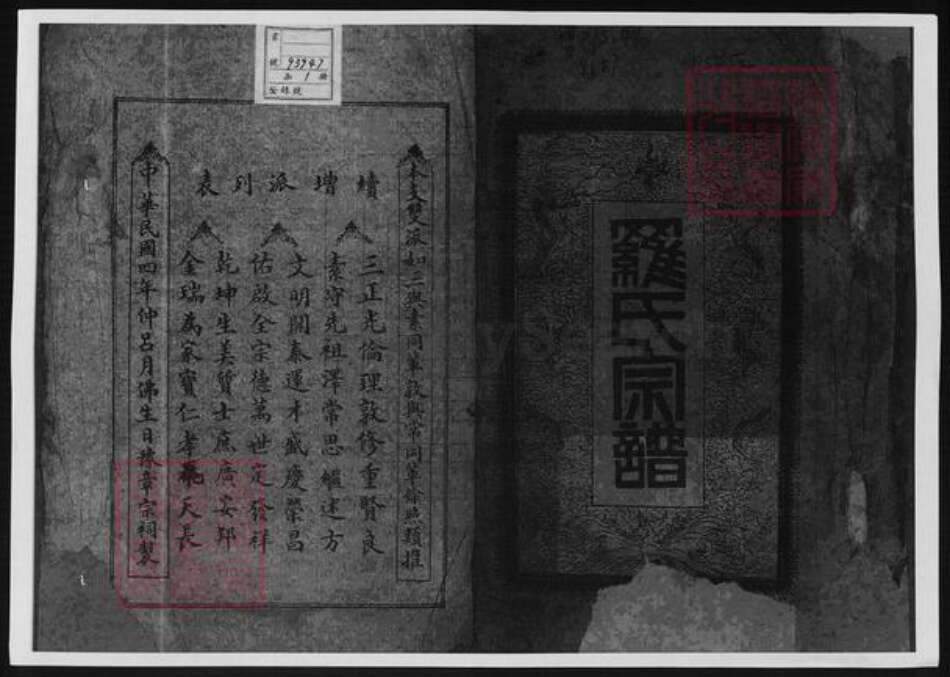 羅氏宗譜
號 93947
函 1 冊
登錄號
本支雙派如三與素同輩敦與常同輩餘照類推
續增派列表
三正光倫理敦修重賢良
素守先祖澤常思繼述方
文明開泰運才盛慶榮昌
佑啟全宗德萬世定發祥
乾坤生美質士庶廣安邦
金瑞為家寶仁孝 天長
中華民國四年仲呂月佛生日豫章宗祠製